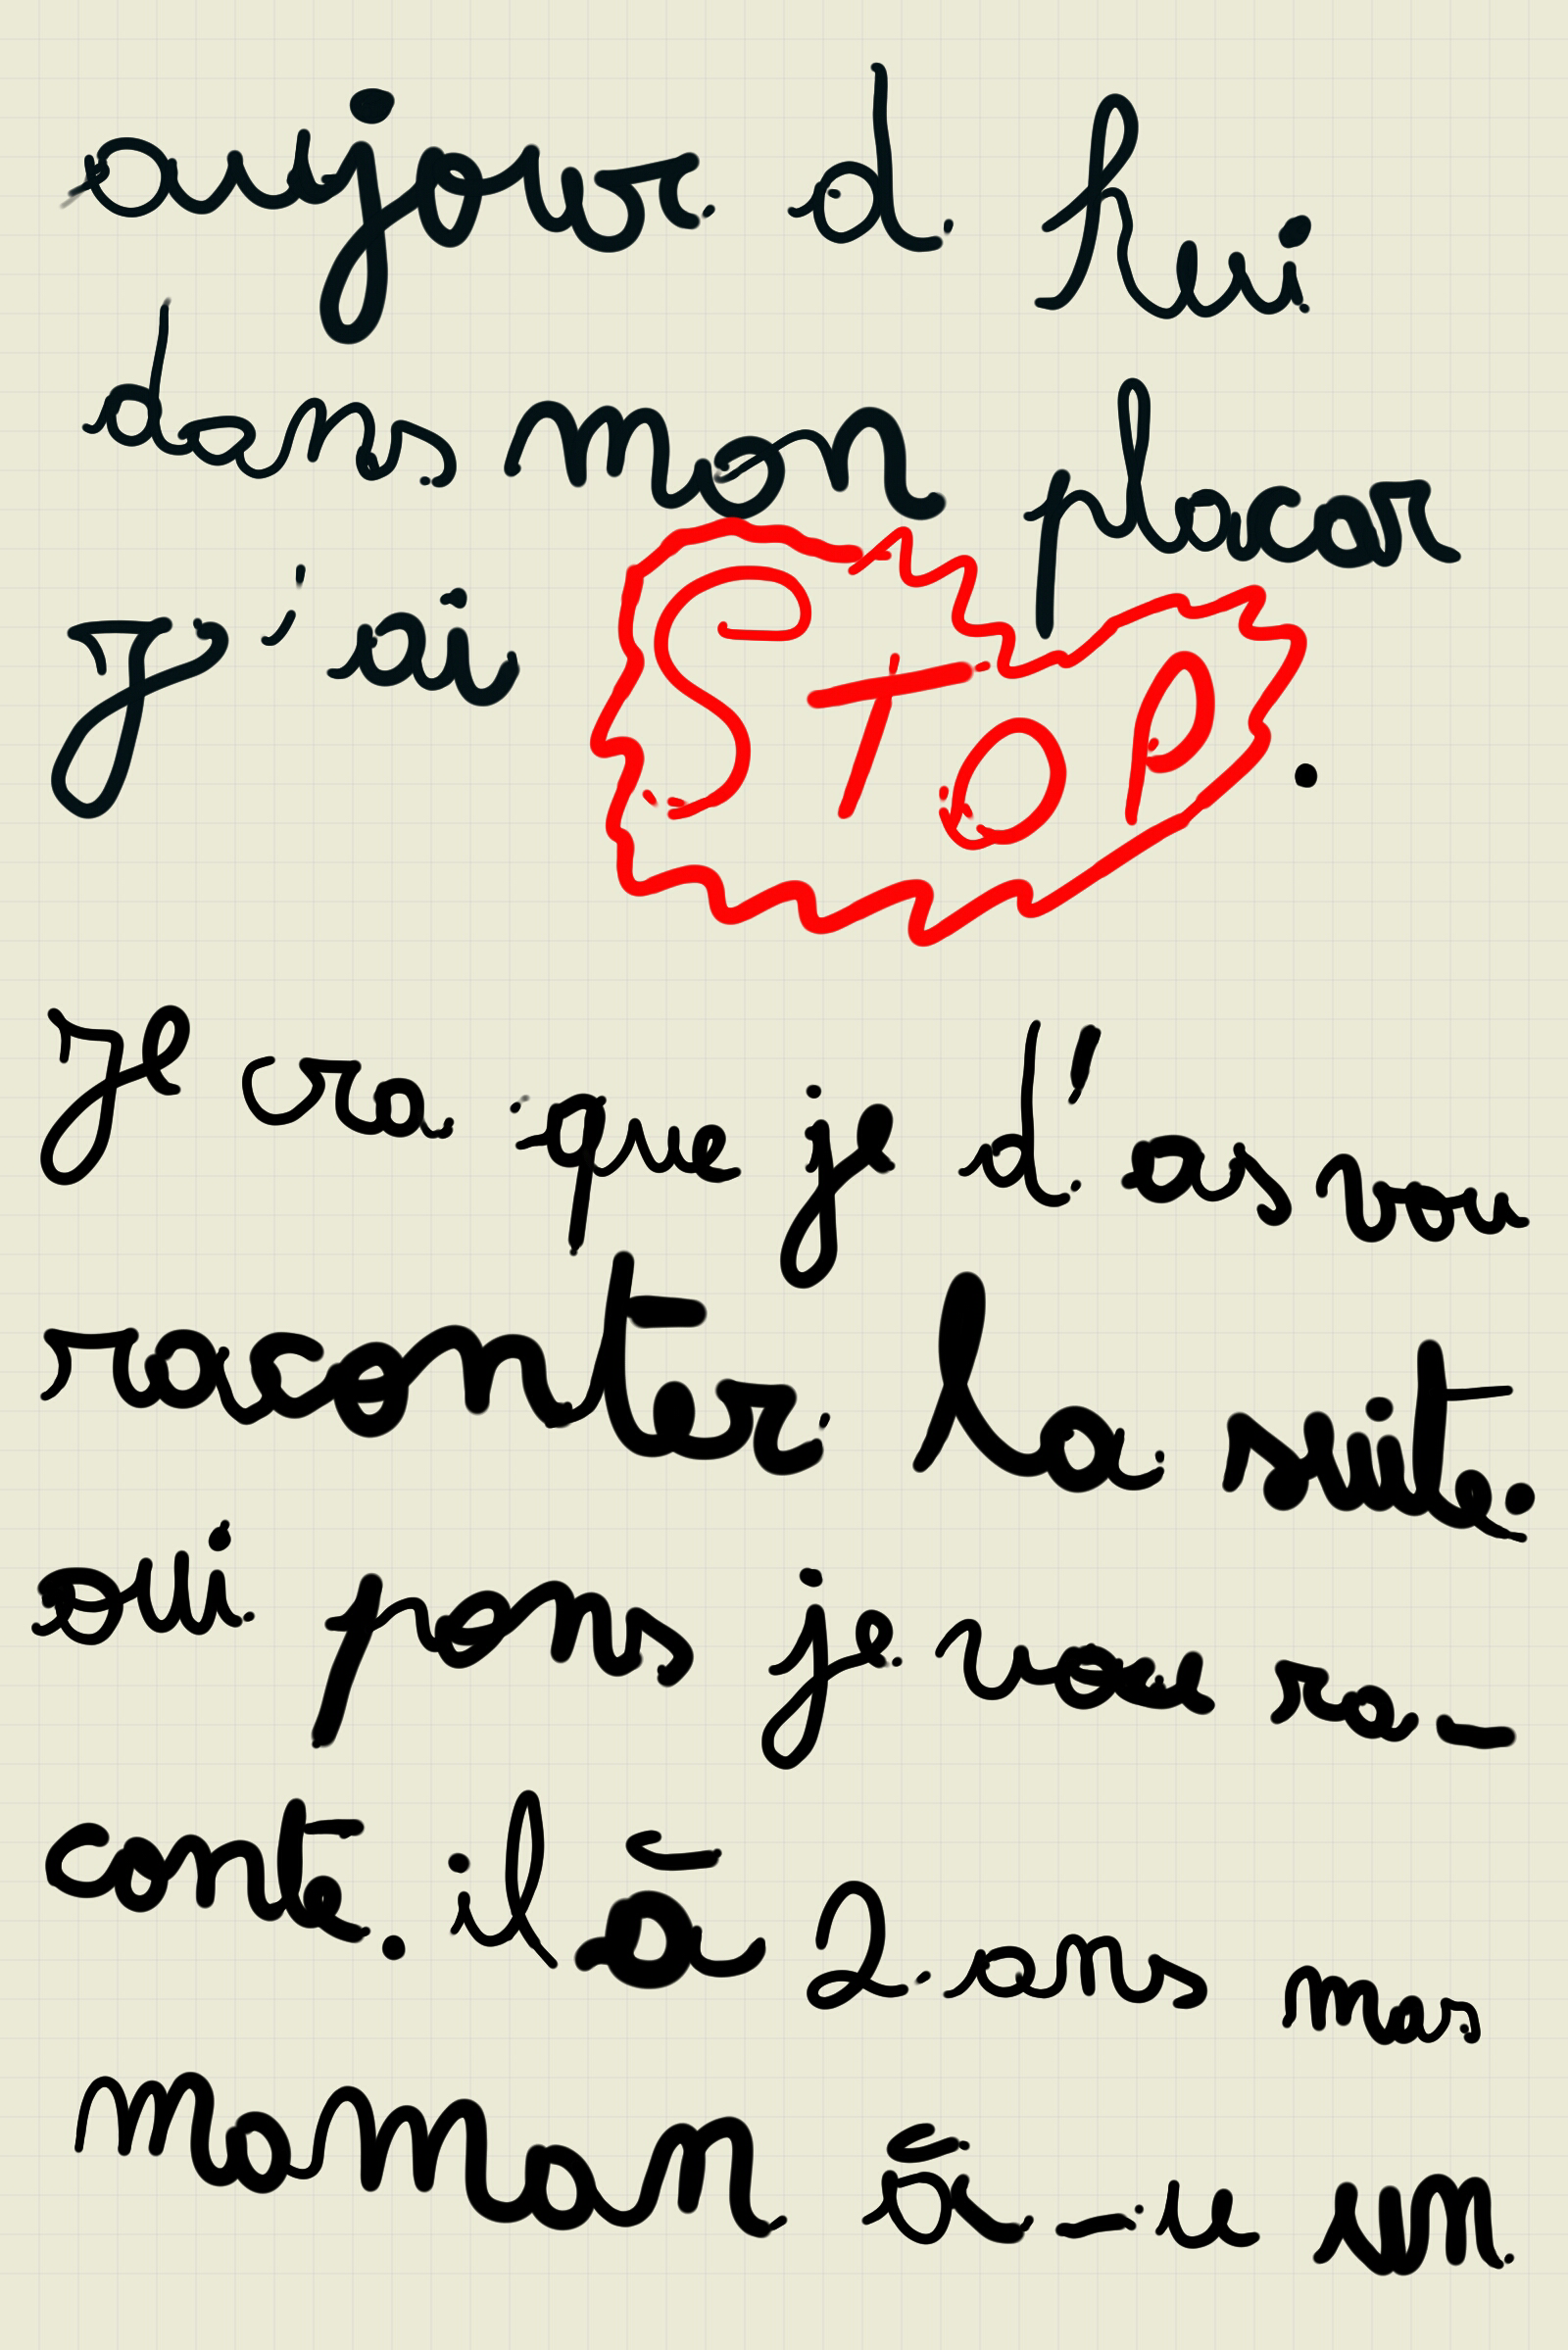 aujour d hui
dans mon placar
j'ai STOP.
Je cra que je d'as vou
raconter la suite.
oui pons je vous ra-
conte. il à 2 ans mas
maman à-u un